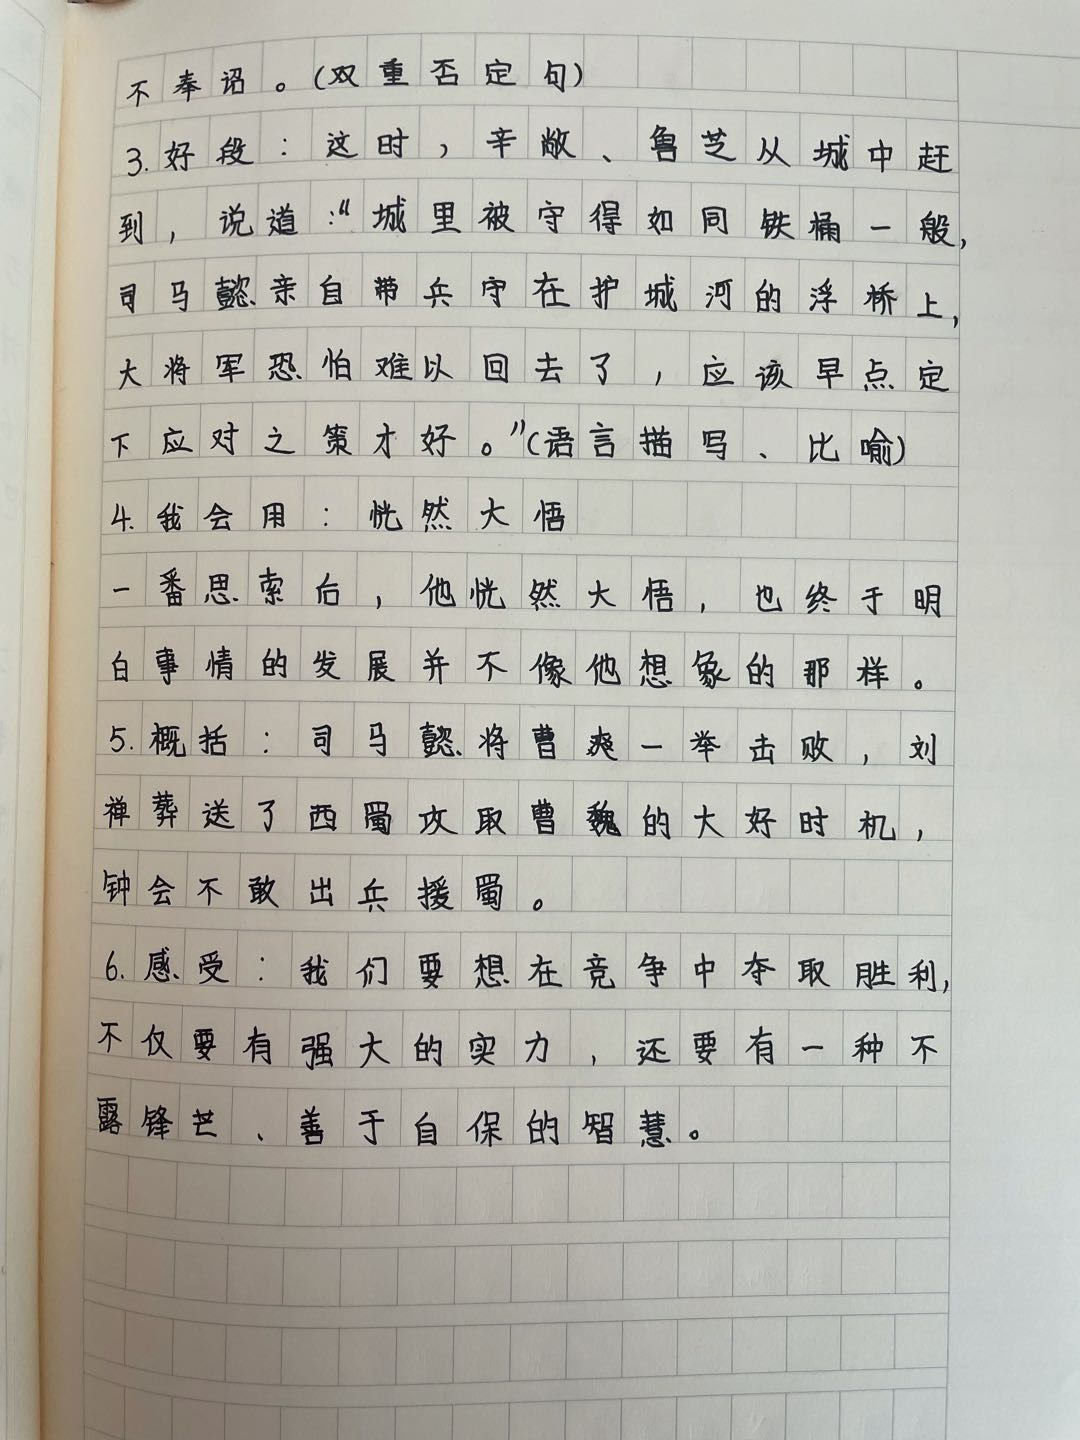 不奉诏。(双重否定句)
3.好段:这时,辛敞、鲁芝从城中赶
到,说道:“城里被守得如同铁桶一般,
司马懿亲自带兵守在护城河的浮桥上,
大将军恐怕难以回去了,应该早点定
下应对之策才好。”(语言描写、比喻)
4.我会用:恍然大悟
一番思索后,他恍然大悟,也终于明
白事情的发展并不像他想象的那样。
5.概括:司马懿将曹爽一举击败,刘
禅葬送了西蜀攻取曹魏的大好时机,
钟会不敢出兵援蜀。
6.感受:我们要想在竞争中夺取胜利,
不仅要有强大的实力,还要有一种不
露锋芒、善于自保的智慧。